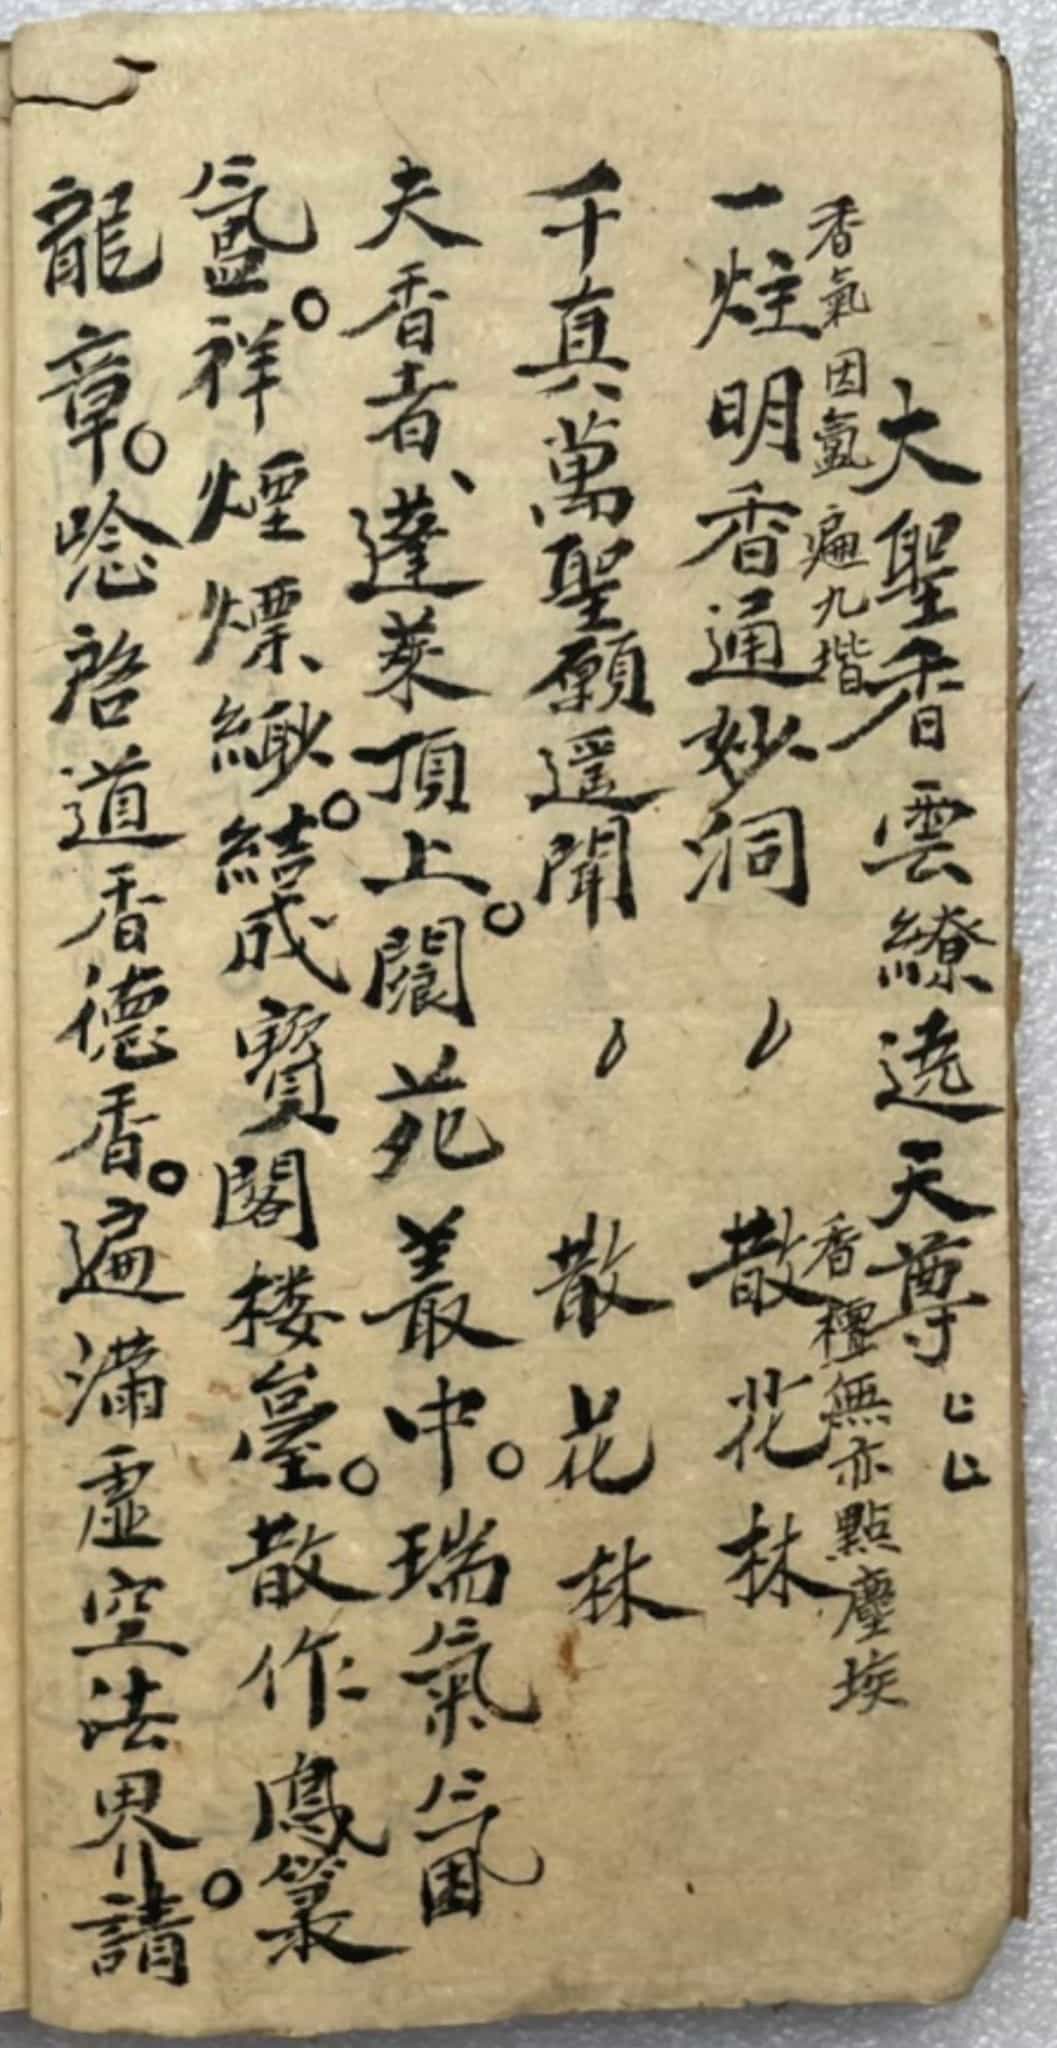 大聖香雲繚遶天尊
香氣因氳遍九堦
香檀無亦點塵埃
一炷明香通妙洞 散花林
千真萬聖願遥聞 散花林
夫香者、蓬萊頂上。閬苑叢中。瑞氣氤
氳。祥煙縹緲。結成寶閣楼臺。散作鳳篆
龍章。唸啓道香德香。遍滿虛空法界。請